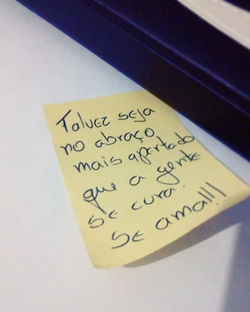 Talvez seja
no abraço
mais apertado
que a gente
se cura!
Se ama!!!